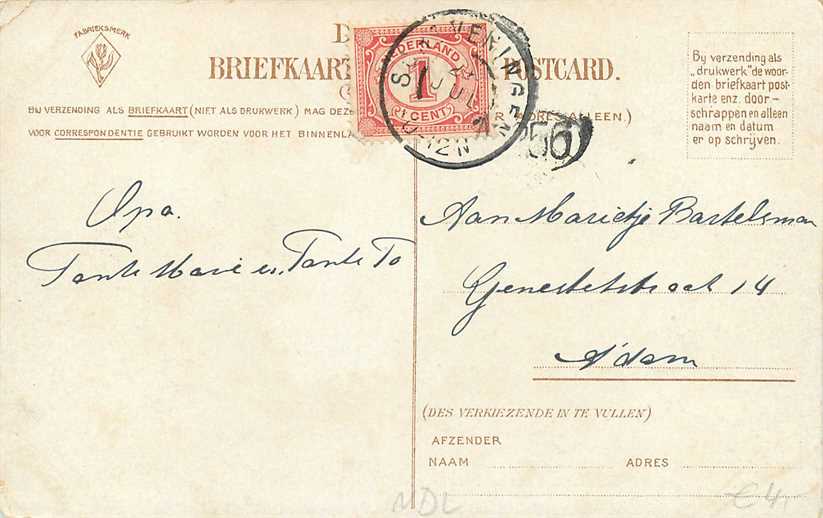 FABRIEKSMERK
BRIEFKAART POSTCARD.
BIJ VERZENDING ALS BRIEFKAART (NIET ALS DRUKWERK) MAG DEZE ADRES ALLEEN.)
VOOR CORRESPONDENTIE GEBRUIKT WORDEN VOOR HET BINNENLA
NEDERLAND
1
CENT
SCHEVENINGEN
JUL
56
Bij verzending als
„drukwerk" de woor-
den briefkaart post-
karte enz. door-
schrappen en alleen
naam en datum
er op schrijven.
Opa.
Tante Marie en Tante To
Aan Marietje Bartelsman
Genestetstraat 14
A'dam
(DES VERKIEZENDE IN TE VULLEN)
AFZENDER
NAAM ADRES
NDL
€4,-